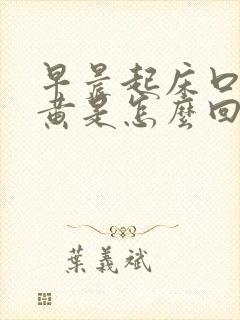 早晨起床口
黄是怎麼回
葉義斌